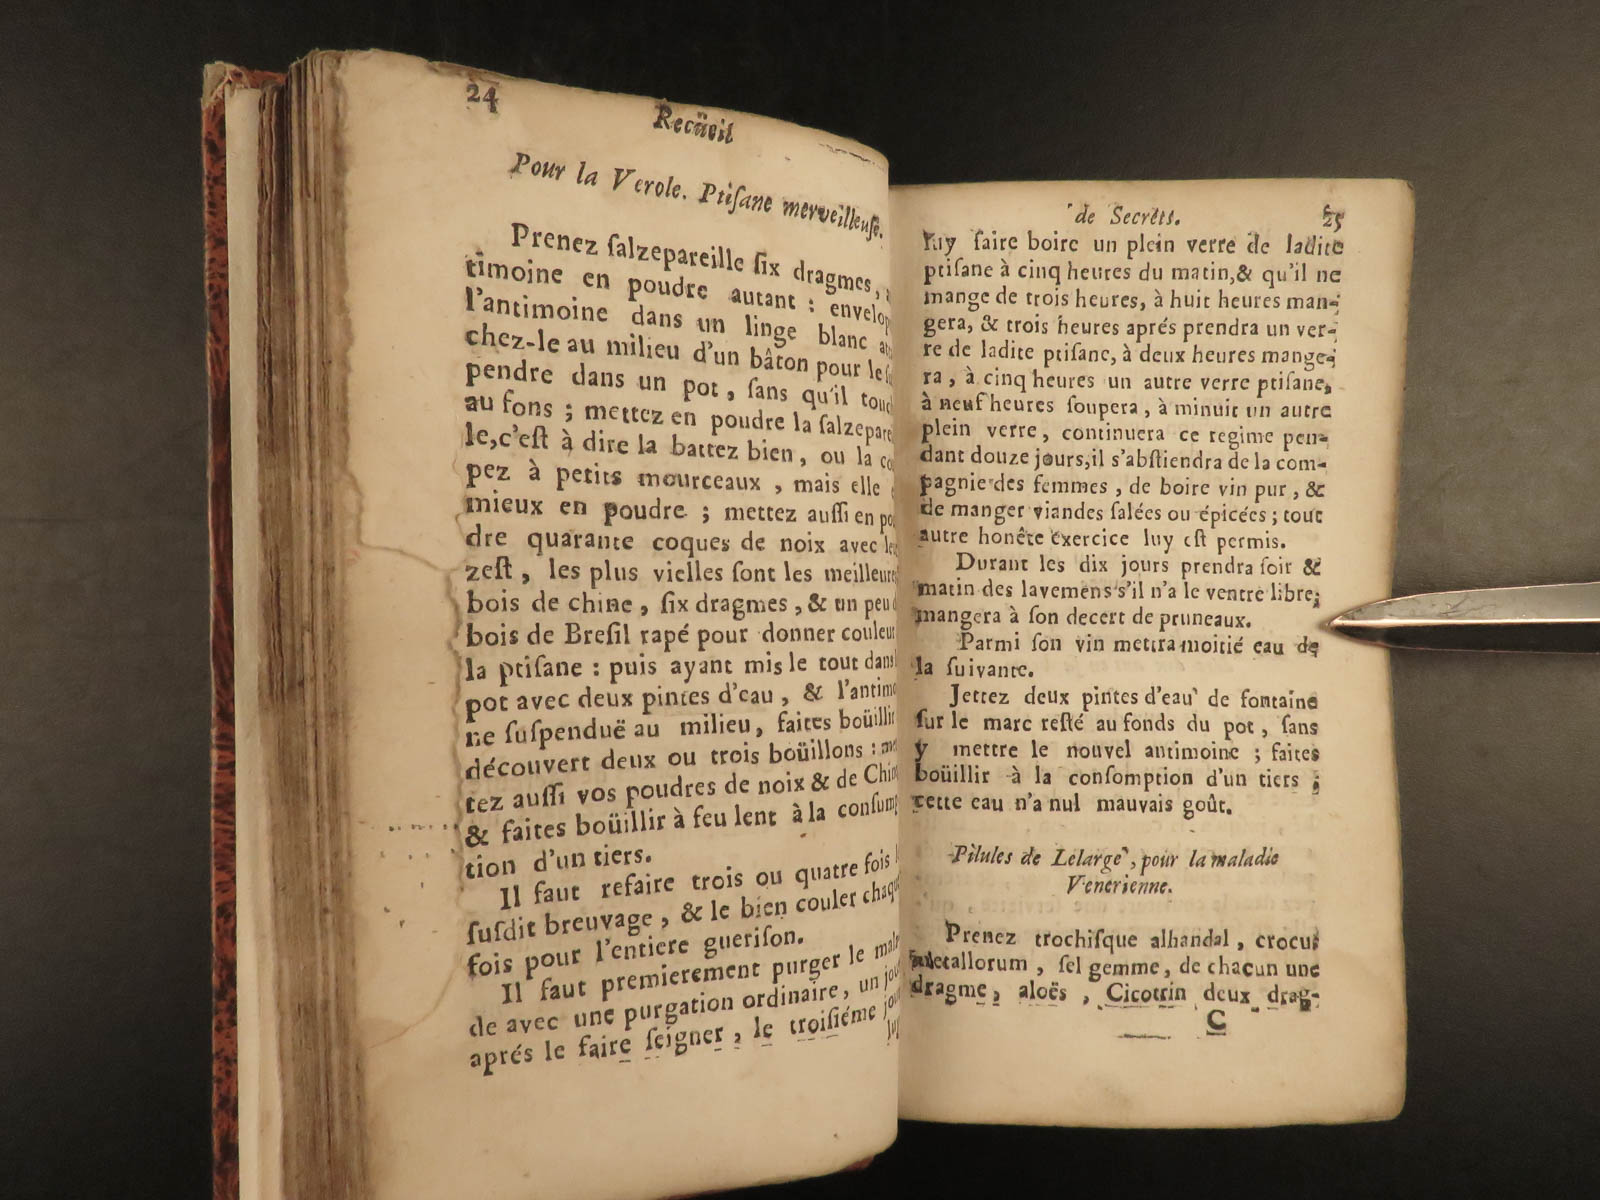 24
Recüeil
Pour la Verole. Ptiſane merveilleuſe.
Prenez ſalzepareille ſix dragmes,
timoine en poudre autant : envelop
l'antimoine dans un linge blanc
chez-le au milieu d'un bâton pour le
pendre dans un pot, ſans qu'il touc
au fons ; mettez en poudre la ſalzepare
le, c'eſt à dire la battez bien, ou la co
pez à petits mourceaux, mais elle
mieux en poudre ; mettez auſſi en po
dre quarante coques de noix avec le
zeſt, les plus vielles ſont les meilleure
bois de chine, ſix dragmes, & un peu d
bois de Breſil rapé pour donner couleur
la ptiſane : puis ayant mis le tout dans
pot avec deux pintes d'eau, & l'antimo
ne ſuſpenduë au milieu, faites boüillir
découvert deux ou trois boüillons : me
tez auſſi vos poudres de noix & de Chin
& faites boüillir à feu lent à la conſump
tion d'un tiers.
Il faut refaire trois ou quatre fois l
ſuſdit breuvage, & le bien couler chaqu
fois pour l'entiere gueriſon.
Il faut premierement purger le mala
de avec une purgation ordinaire, un jou
aprés le faire ſeigner, le troiſiéme jou
luy
de Secrêts.
25
luy faire boire un plein verre de ladite
ptiſane à cinq heures du matin, & qu'il ne
mange de trois heures, à huit heures man-
gera, & trois heures aprés prendra un ver-
re de ladite ptiſane, à deux heures mange-
ra, à cinq heures un autre verre ptiſane,
à neuf heures ſoupera, à minuit un autre
plein verre, continuera ce regime pen-
dant douze jours, il s'abſtiendra de la com-
pagnie des femmes, de boire vin pur, &
de manger viandes ſalées ou épicées ; tout
autre honête exercice luy eſt permis.
Durant les dix jours prendra ſoir &
matin des lavemens s'il n'a le ventre libre;
mangera à ſon decert de pruneaux.
Parmi ſon vin mettra moitié eau de
la ſuivante.
Jettez deux pintes d'eau de fontaine
ſur le marc reſté au fonds du pot, ſans
y mettre le nouvel antimoine ; faites
boüillir à la conſomption d'un tiers ;
cette eau n'a nul mauvais goût.
Pilules de Lelarge, pour la maladie
Venerienne.
Prenez trochiſque alhandal, crocus
metallorum, ſel gemme, de chacun une
dragme, aloës, Cicotrin deux drag-
C